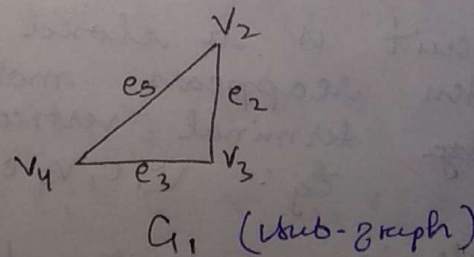 V2
e5
e2
V4
e3
V3
G1 (sub-graph)